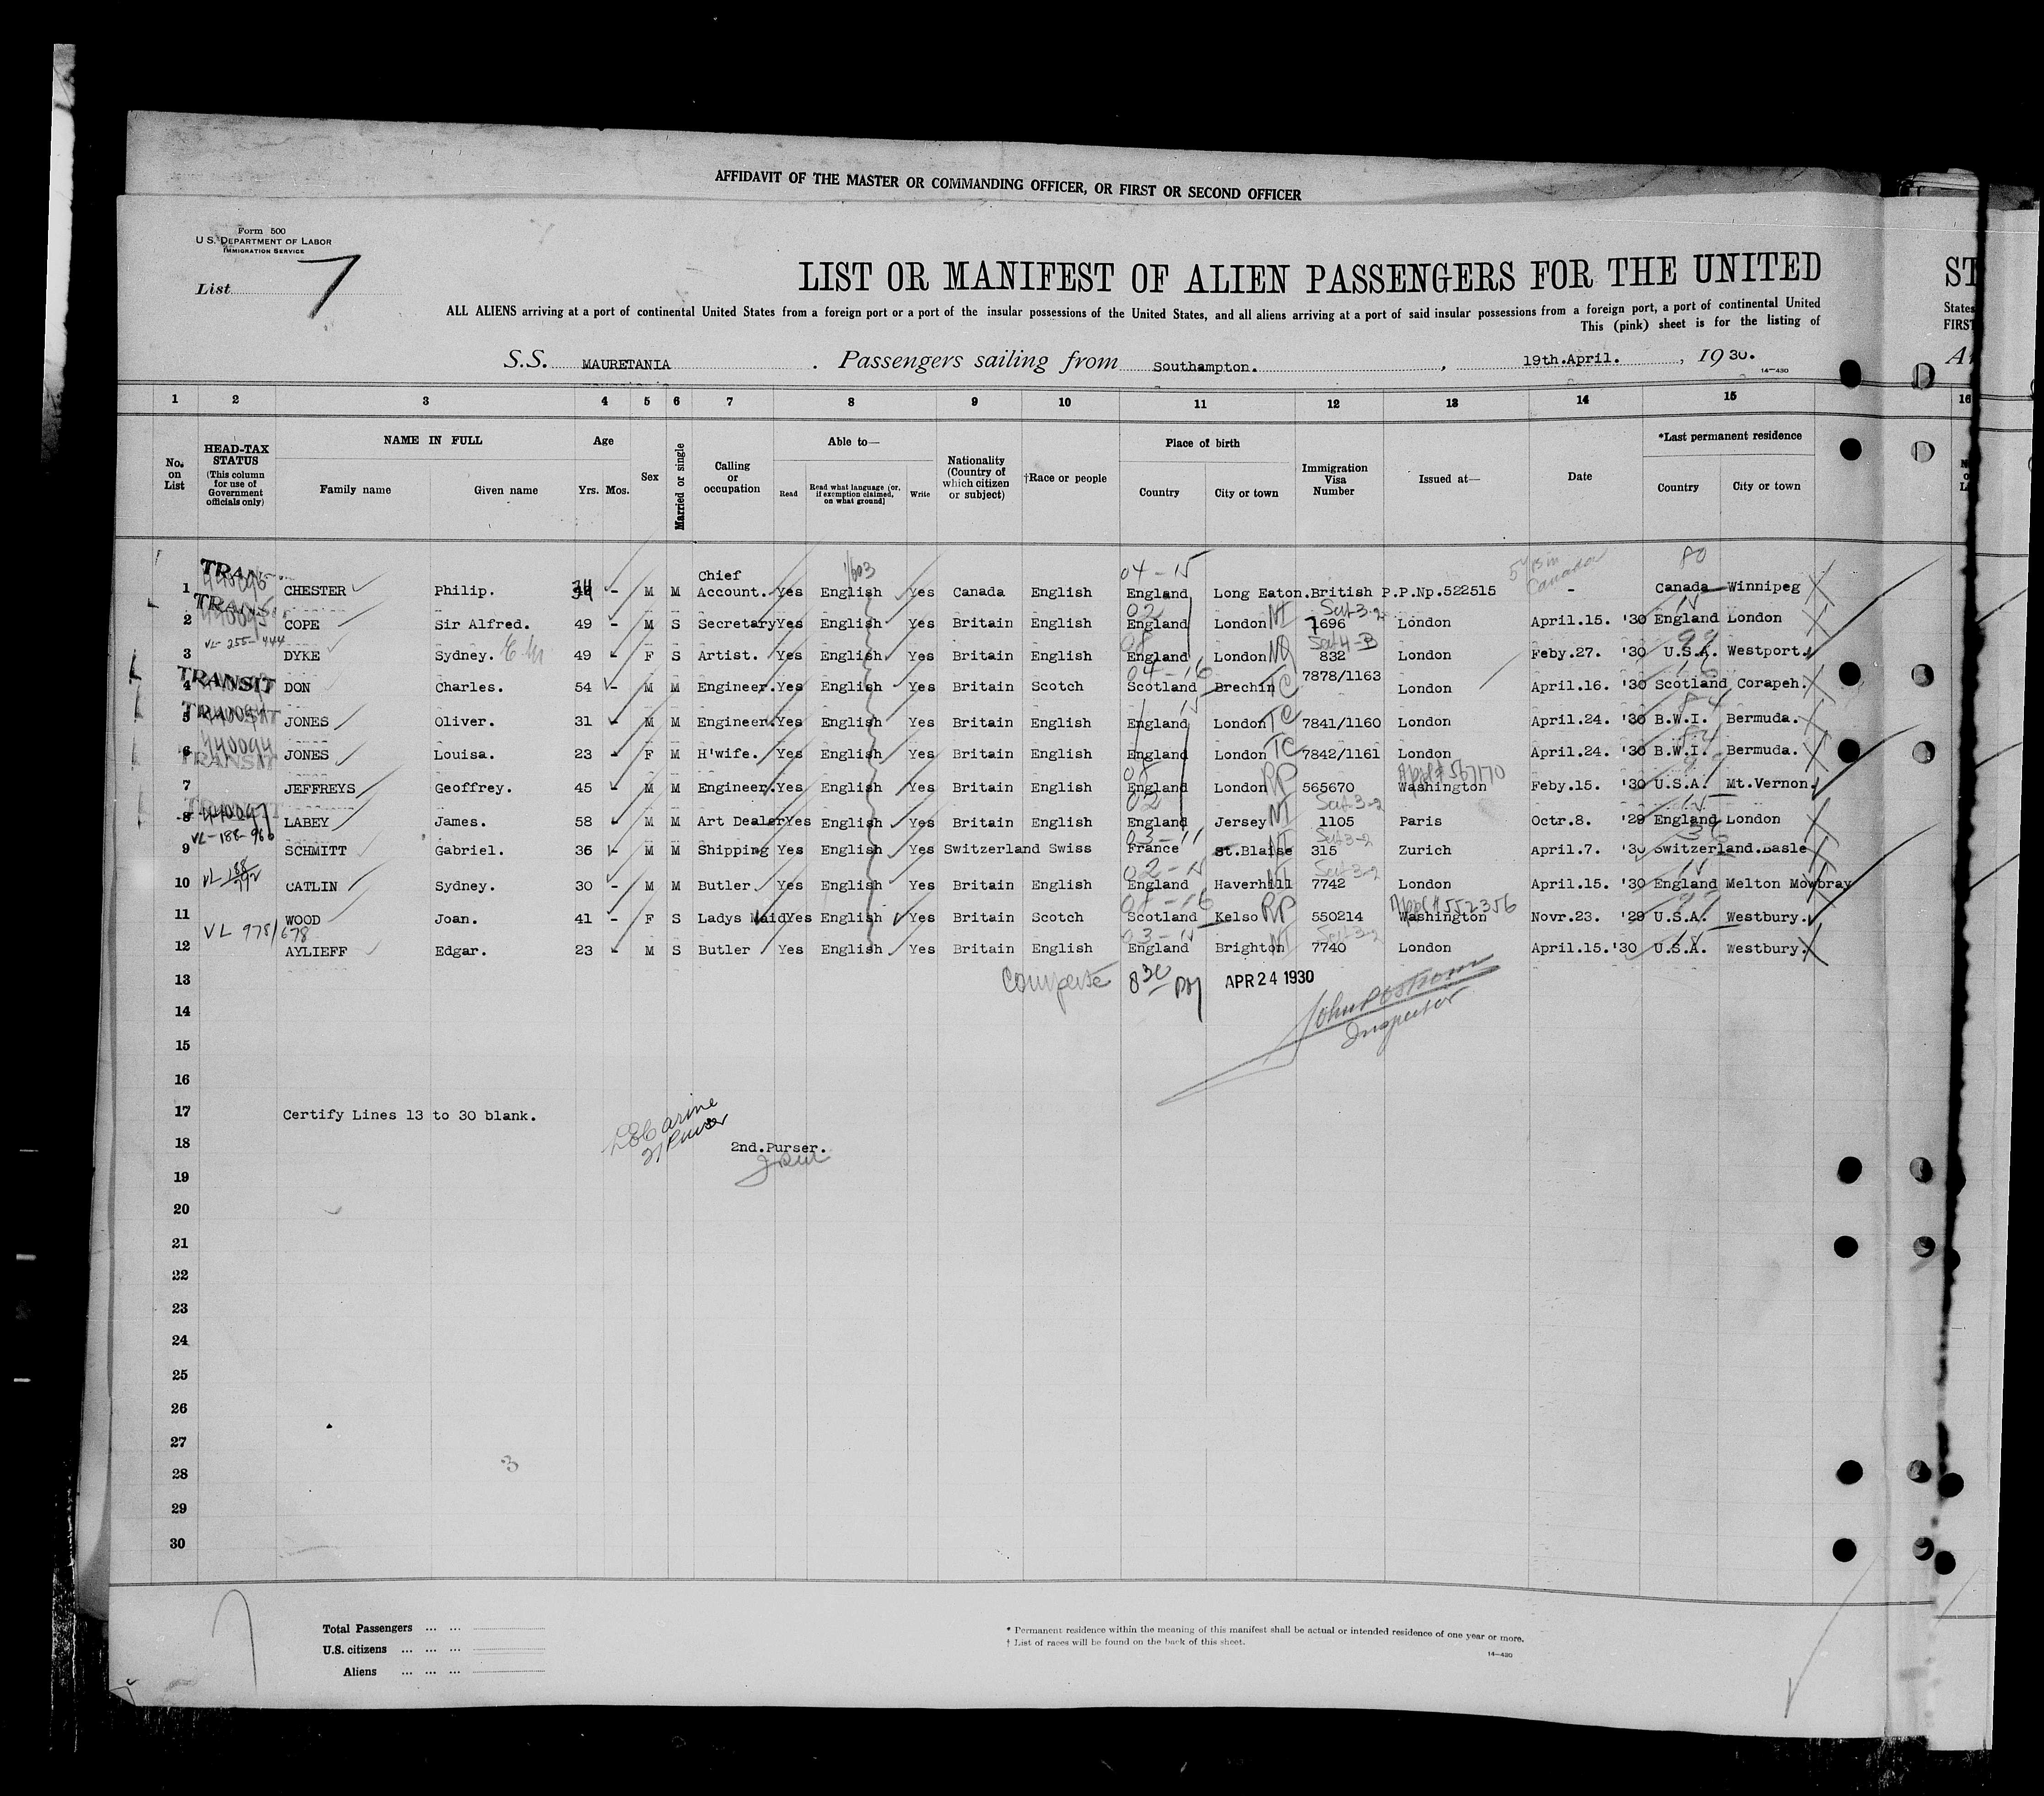 AFFIDAVIT OF THE MASTER OR COMMANDING OFFICER, OR FIRST OR SECOND OFFICER
Form 500
U.S. DEPARTMENT OF LABOR
IMMIGRATION SERVICE
List 7
LIST OR MANIFEST OF ALIEN PASSENGERS FOR THE UNITED
ST
ALL ALIENS arriving at a port of continental United States from a foreign port or a port of the insular possessions of the United States, and all aliens arriving at a port of said insular possessions from a foreign port, a port of continental United
States
This (pink) sheet is for the listing of
FIRST
S.S. MAURETANIA. Passengers sailing from Southampton., 19th.April., 1930.
14—430
1 2 3 4 5 6 7 8 9 10 11 12 13 14 15 16
No. on List
HEAD-TAX STATUS (This column for use of Government officials only)
NAME IN FULL
Family name Given name
Age
Yrs. Mos.
Sex
Married or single
Calling or occupation
Able to—
Read Read what language (or, if exemption claimed, on what ground) Write
Nationality (Country of which citizen or subject)
†Race or people
Place of birth
Country City or town
Immigration Visa Number
Issued at—
Date
*Last permanent residence
Country City or town
TRAN 1/603 04-15 80
Chief
1 CHESTER Philip. 34 - M M Account. Yes English Yes Canada English England Long Eaton.British P.P.Np.522515 - Canada Winnipeg
02 Sect 3-2 15
2 COPE Sir Alfred. 49 - M S Secretary Yes English Yes Britain English England London NI 7696 London April.15. '30 England London
VL-255-444 08 Sect 4-B 99
3 DYKE Sydney. 49 - F S Artist. Yes English Yes Britain English England London NQ 832 London Feby.27. '30 U.S.A. Westport.
TRANSIT 04-16 16
4 DON Charles. 54 - M M Engineer. Yes English Yes Britain Scotch Scotland Brechin TC 7878/1163 London April.16. '30 Scotland Corapeh.
TRANSIT 15 84
5 JONES Oliver. 31 - M M Engineer. Yes English Yes Britain English England London TC 7841/1160 London April.24. '30 B.W.I. Bermuda.
440094 TRANSIT 84
6 JONES Louisa. 23 - F M H'wife. Yes English Yes Britain English England London TC 7842/1161 London April.24. '30 B.W.I. Bermuda.
08 Appl # 567170
7 JEFFREYS Geoffrey. 45 - M M Engineer. Yes English Yes Britain English England London RP 565670 Washington Feby.15. '30 U.S.A. Mt.Vernon.
440097 02 Sect 3-2 15
8 LABEY James. 58 - M M Art Dealer Yes English Yes Britain English England Jersey NI 1105 Paris Octr.8. '29 England London
VL-188-960 03-11 Sect 3-2 36
9 SCHMITT Gabriel. 36 - M M Shipping Yes English Yes Switzerland Swiss France St.Blaise NI 315 Zurich April.7. '30 Switzerland.Basle
VL 188/992 02-15 Sect 3-2 15
10 CATLIN Sydney. 30 - M M Butler. Yes English Yes Britain English England Haverhill NI 7742 London April.15. '30 England Melton Mowbray
08-16 Appl # 552356 99
11 WOOD Joan. 41 - F S Ladys Maid Yes English Yes Britain Scotch Scotland Kelso RP 550214 Washington Novr.23. '29 U.S.A. Westbury.
VL 978/678 03-15 Sect 3-2 15
12 AYLIEFF Edgar. 23 - M S Butler Yes English Yes Britain English England Brighton NI 7740 London April.15.'30 U.S.A. Westbury.
13 8 30 PM APR 24 1930
14
Inspector
15
16
17 Certify Lines 13 to 30 blank.
18 2nd.Purser.
19
20
21
22
23
24
25
26
27
28
29
30
3
Total Passengers
U.S. citizens
Aliens
* Permanent residence within the meaning of this manifest shall be actual or intended residence of one year or more.
† List of races will be found on the back of this sheet.
14—430